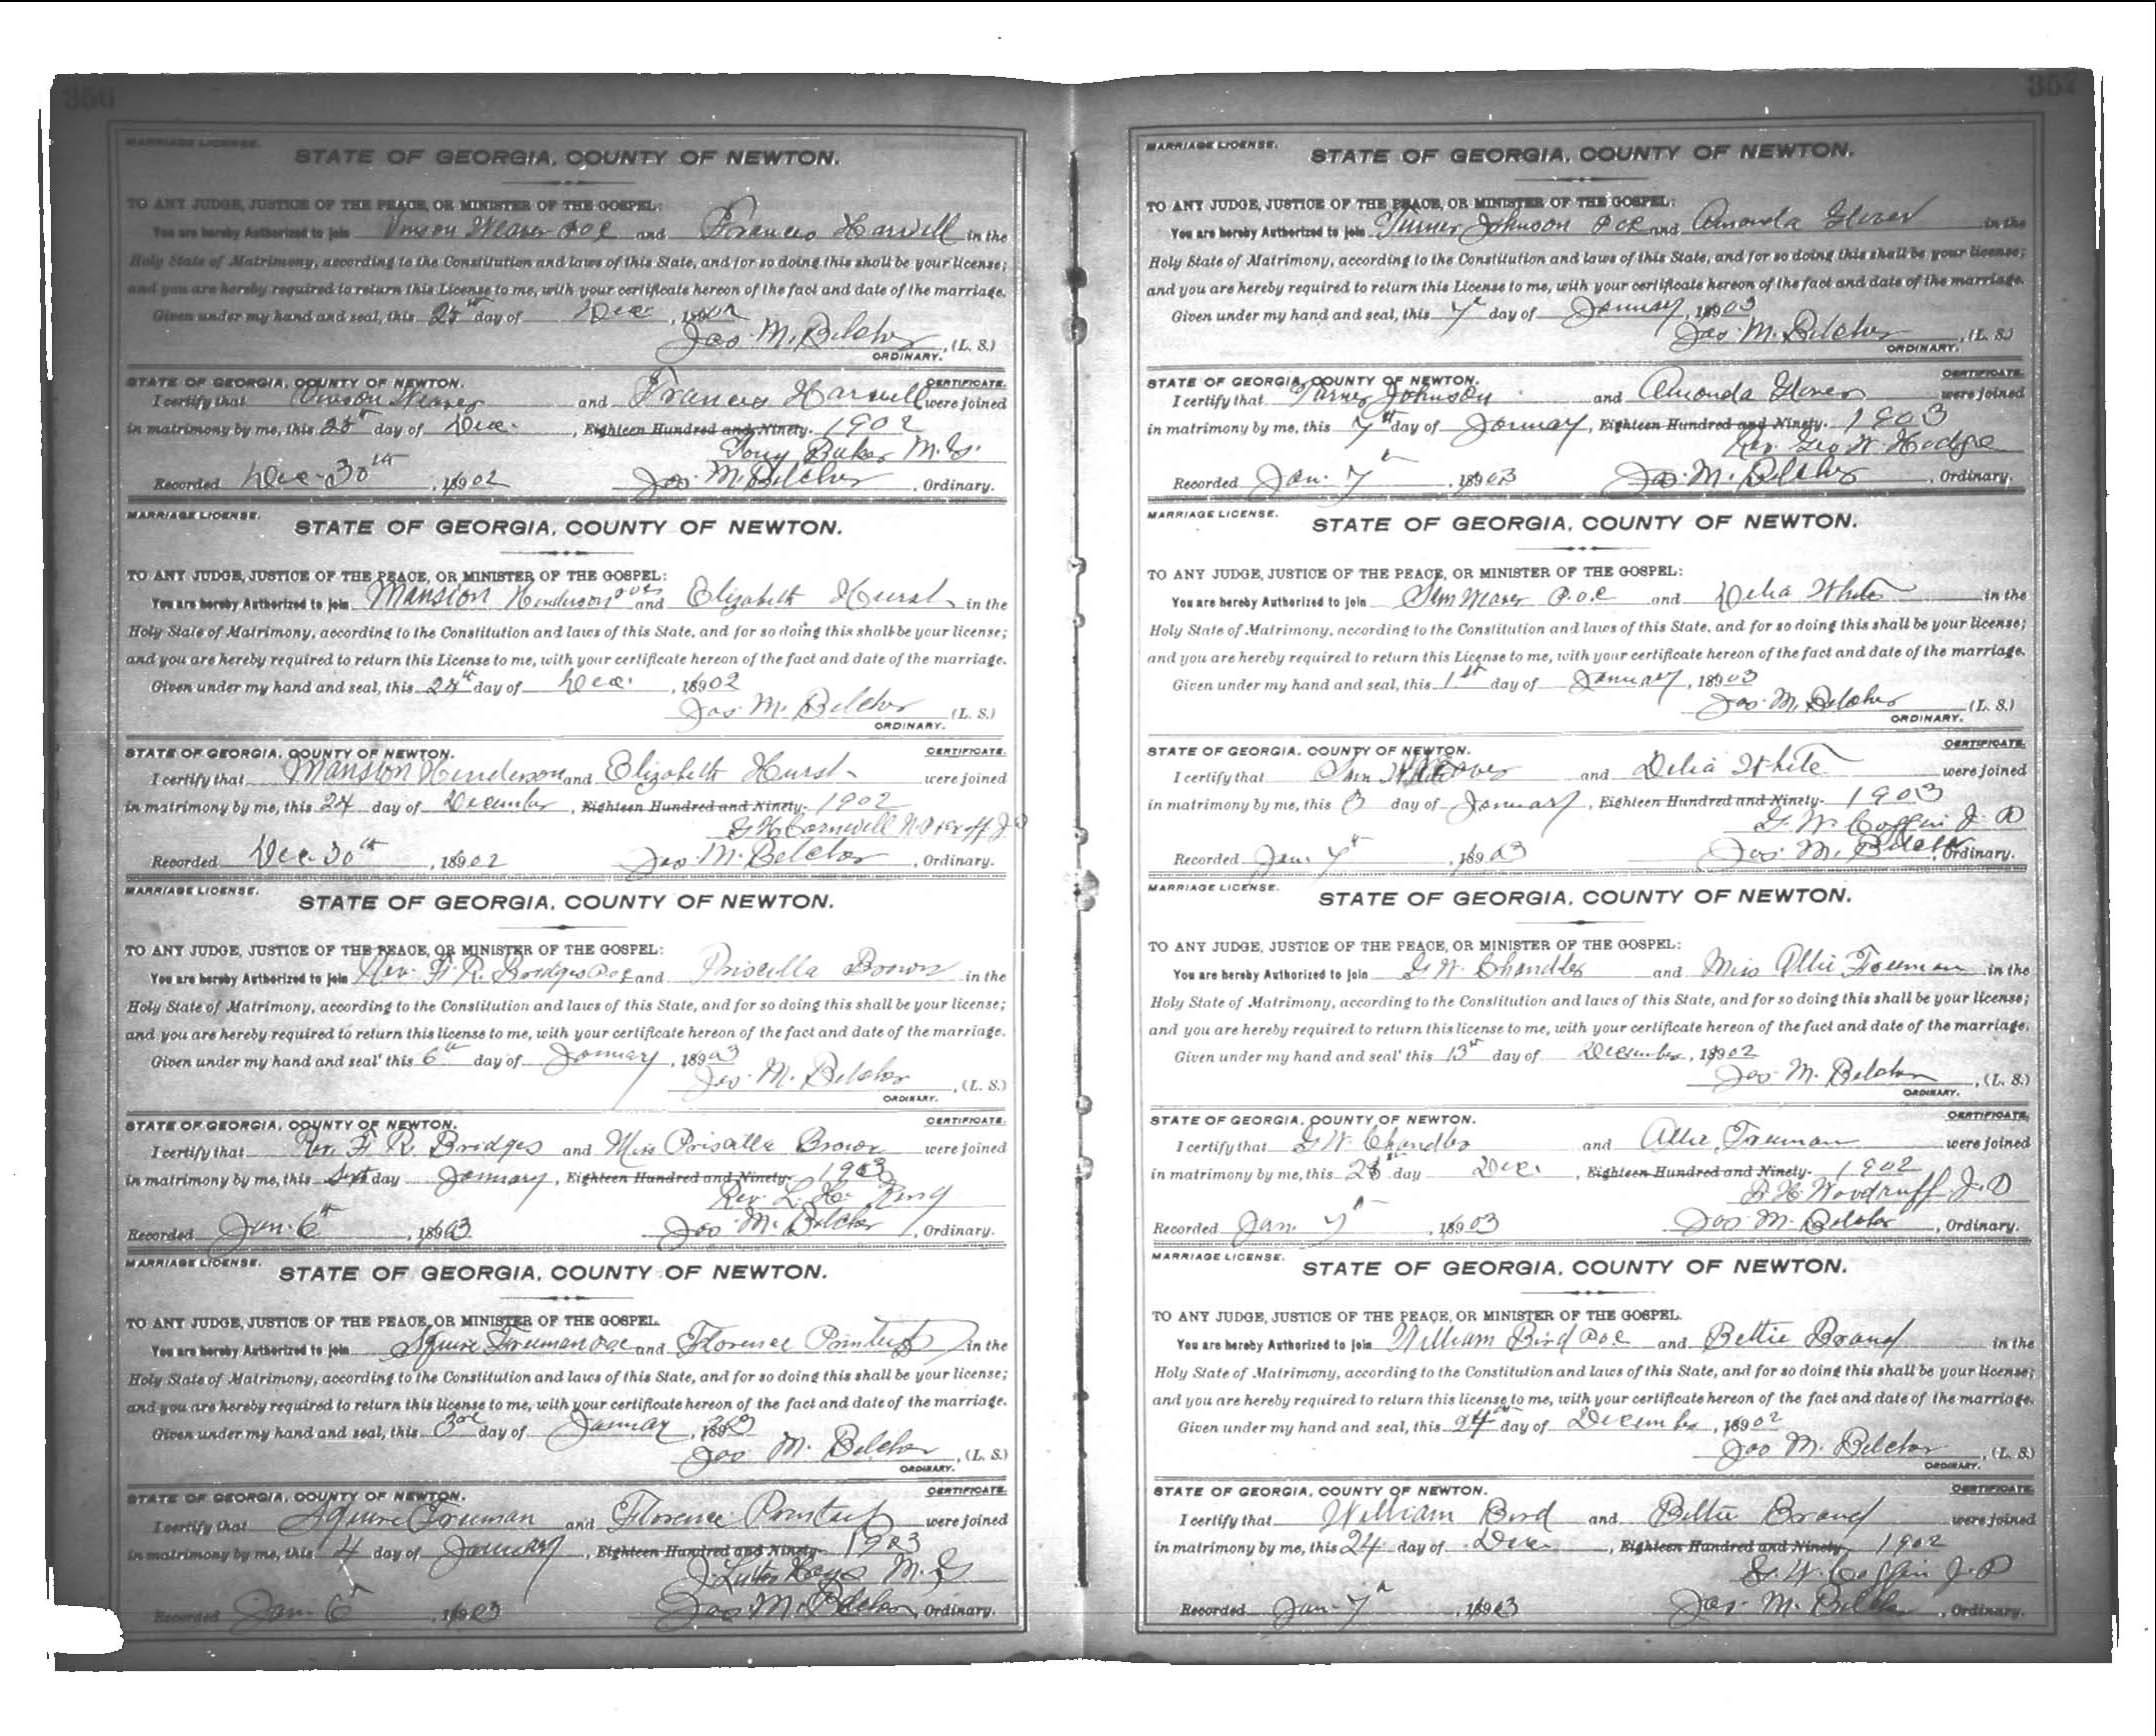 356
MARRIAGE LICENSE.
STATE OF GEORGIA, COUNTY OF NEWTON.
TO ANY JUDGE, JUSTICE OF THE PEACE, OR MINISTER OF THE GOSPEL:
You are hereby Authorized to join Vinson Weaver and Frances Harwell in the
Holy State of Matrimony, according to the Constitution and laws of this State, and for so doing this shall be your license;
and you are hereby required to return this License to me, with your certificate hereon of the fact and date of the marriage.
Given under my hand and seal, this day of Dec. 1902
Jas. M. Belcher, (L. S.)
ORDINARY.
STATE OF GEORGIA, COUNTY OF NEWTON. CERTIFICATE.
I certify that Vinson Weaver and Frances Harwell were joined
in matrimony by me, this day of Dec. Eighteen Hundred and Ninety. 1902
Tony Baker M.G.
Recorded Dec. 30th, 1902 Jas. M. Belcher, Ordinary.
MARRIAGE LICENSE.
STATE OF GEORGIA, COUNTY OF NEWTON.
TO ANY JUDGE, JUSTICE OF THE PEACE, OR MINISTER OF THE GOSPEL:
You are hereby Authorized to join Mansion Henderson and Elizabeth Hurst in the
Holy State of Matrimony, according to the Constitution and laws of this State, and for so doing this shall be your license;
and you are hereby required to return this License to me, with your certificate hereon of the fact and date of the marriage.
Given under my hand and seal, this 24th day of Dec. 1902
Jas. M. Belcher (L. S.)
ORDINARY.
STATE OF GEORGIA, COUNTY OF NEWTON. CERTIFICATE.
I certify that Mansion Henderson and Elizabeth Hurst were joined
in matrimony by me, this 24 day of December, Eighteen Hundred and Ninety. 1902
Recorded Dec. 30th, 1902 Jas. M. Belcher, Ordinary.
MARRIAGE LICENSE.
STATE OF GEORGIA, COUNTY OF NEWTON.
TO ANY JUDGE, JUSTICE OF THE PEACE, OR MINISTER OF THE GOSPEL:
You are hereby Authorized to join Rev. F. R. Bridges and Priscilla Brown in the
Holy State of Matrimony, according to the Constitution and laws of this State, and for so doing this shall be your license;
and you are hereby required to return this license to me, with your certificate hereon of the fact and date of the marriage.
Given under my hand and seal this 6th day of January, 1903
Jas. M. Belcher, (L. S.)
ORDINARY.
STATE OF GEORGIA, COUNTY OF NEWTON. CERTIFICATE.
I certify that Rev. F. R. Bridges and Miss Priscilla Brown were joined
in matrimony by me, this day January, Eighteen Hundred and Ninety. 1903
Rev. L. H. King
Recorded Jan. 6th, 1903 Jas. M. Belcher, Ordinary.
MARRIAGE LICENSE.
STATE OF GEORGIA, COUNTY OF NEWTON.
TO ANY JUDGE, JUSTICE OF THE PEACE, OR MINISTER OF THE GOSPEL.
You are hereby Authorized to join Squire Freeman and Florence Pointer in the
Holy State of Matrimony, according to the Constitution and laws of this State, and for so doing this shall be your license;
and you are hereby required to return this license to me, with your certificate hereon of the fact and date of the marriage.
Given under my hand and seal, this 3rd day of January, 1903
Jas. M. Belcher, (L. S.)
ORDINARY.
STATE OF GEORGIA, COUNTY OF NEWTON. CERTIFICATE.
I certify that Squire Freeman and Florence were joined
in matrimony by me, this 4 day of January, Eighteen Hundred and Ninety. 1903
M. G.
Recorded Jan. 6th, 1903 Jas. M. Belcher, Ordinary.
357
MARRIAGE LICENSE.
STATE OF GEORGIA, COUNTY OF NEWTON.
TO ANY JUDGE, JUSTICE OF THE PEACE, OR MINISTER OF THE GOSPEL:
You are hereby Authorized to join Turner Johnson and Amanda Glover in the
Holy State of Matrimony, according to the Constitution and laws of this State, and for so doing this shall be your license;
and you are hereby required to return this License to me, with your certificate hereon of the fact and date of the marriage.
Given under my hand and seal, this 7th day of January, 1903
Jas. M. Belcher, (L. S.)
ORDINARY.
STATE OF GEORGIA, COUNTY OF NEWTON. CERTIFICATE.
I certify that Turner Johnson and Amonda Glover were joined
in matrimony by me, this 7th day of January, Eighteen Hundred and Ninety. 1903
Rev. Geo. W. Hodge
Recorded Jan. 7th, 1903 Jas. M. Belcher, Ordinary.
MARRIAGE LICENSE.
STATE OF GEORGIA, COUNTY OF NEWTON.
TO ANY JUDGE, JUSTICE OF THE PEACE, OR MINISTER OF THE GOSPEL:
You are hereby Authorized to join Sem Weaver P.O.C. and Delia White in the
Holy State of Matrimony, according to the Constitution and laws of this State, and for so doing this shall be your license;
and you are hereby required to return this License to me, with your certificate hereon of the fact and date of the marriage.
Given under my hand and seal, this 1st day of January, 1903
Jas. M. Belcher (L. S.)
ORDINARY.
STATE OF GEORGIA, COUNTY OF NEWTON. CERTIFICATE.
I certify that Weaver and Delia White were joined
in matrimony by me, this 3 day of January, Eighteen Hundred and Ninety. 1903
G. W. Coffin J. P.
Recorded Jan. 7th, 1903 Jas. M. Belcher, Ordinary.
MARRIAGE LICENSE.
STATE OF GEORGIA, COUNTY OF NEWTON.
TO ANY JUDGE, JUSTICE OF THE PEACE, OR MINISTER OF THE GOSPEL:
You are hereby Authorized to join G. W. Chandler and Miss Allie Freeman in the
Holy State of Matrimony, according to the Constitution and laws of this State, and for so doing this shall be your license;
and you are hereby required to return this license to me, with your certificate hereon of the fact and date of the marriage.
Given under my hand and seal this 13th day of December, 1902
Jas. M. Belcher, (L. S.)
ORDINARY.
STATE OF GEORGIA, COUNTY OF NEWTON. CERTIFICATE.
I certify that G. W. Chandler and Allie Freeman were joined
in matrimony by me, this day Dec. Eighteen Hundred and Ninety. 1902
Woodruff J. P.
Recorded Jan. 7th, 1903 Jas. M. Belcher, Ordinary.
MARRIAGE LICENSE.
STATE OF GEORGIA, COUNTY OF NEWTON.
TO ANY JUDGE, JUSTICE OF THE PEACE, OR MINISTER OF THE GOSPEL.
You are hereby Authorized to join William Bird P.O.C. and Bettie Brand in the
Holy State of Matrimony, according to the Constitution and laws of this State, and for so doing this shall be your license;
and you are hereby required to return this license to me, with your certificate hereon of the fact and date of the marriage.
Given under my hand and seal, this 24th day of December, 1902
Jas. M. Belcher, (L. S.)
ORDINARY.
STATE OF GEORGIA, COUNTY OF NEWTON. CERTIFICATE.
I certify that William Bird and Bettie Brand were joined
in matrimony by me, this 24 day of Dec., Eighteen Hundred and Ninety 1902
G. W. Coffin J. P.
Recorded Jan. 7th, 1903 Jas. M. Belcher, Ordinary.